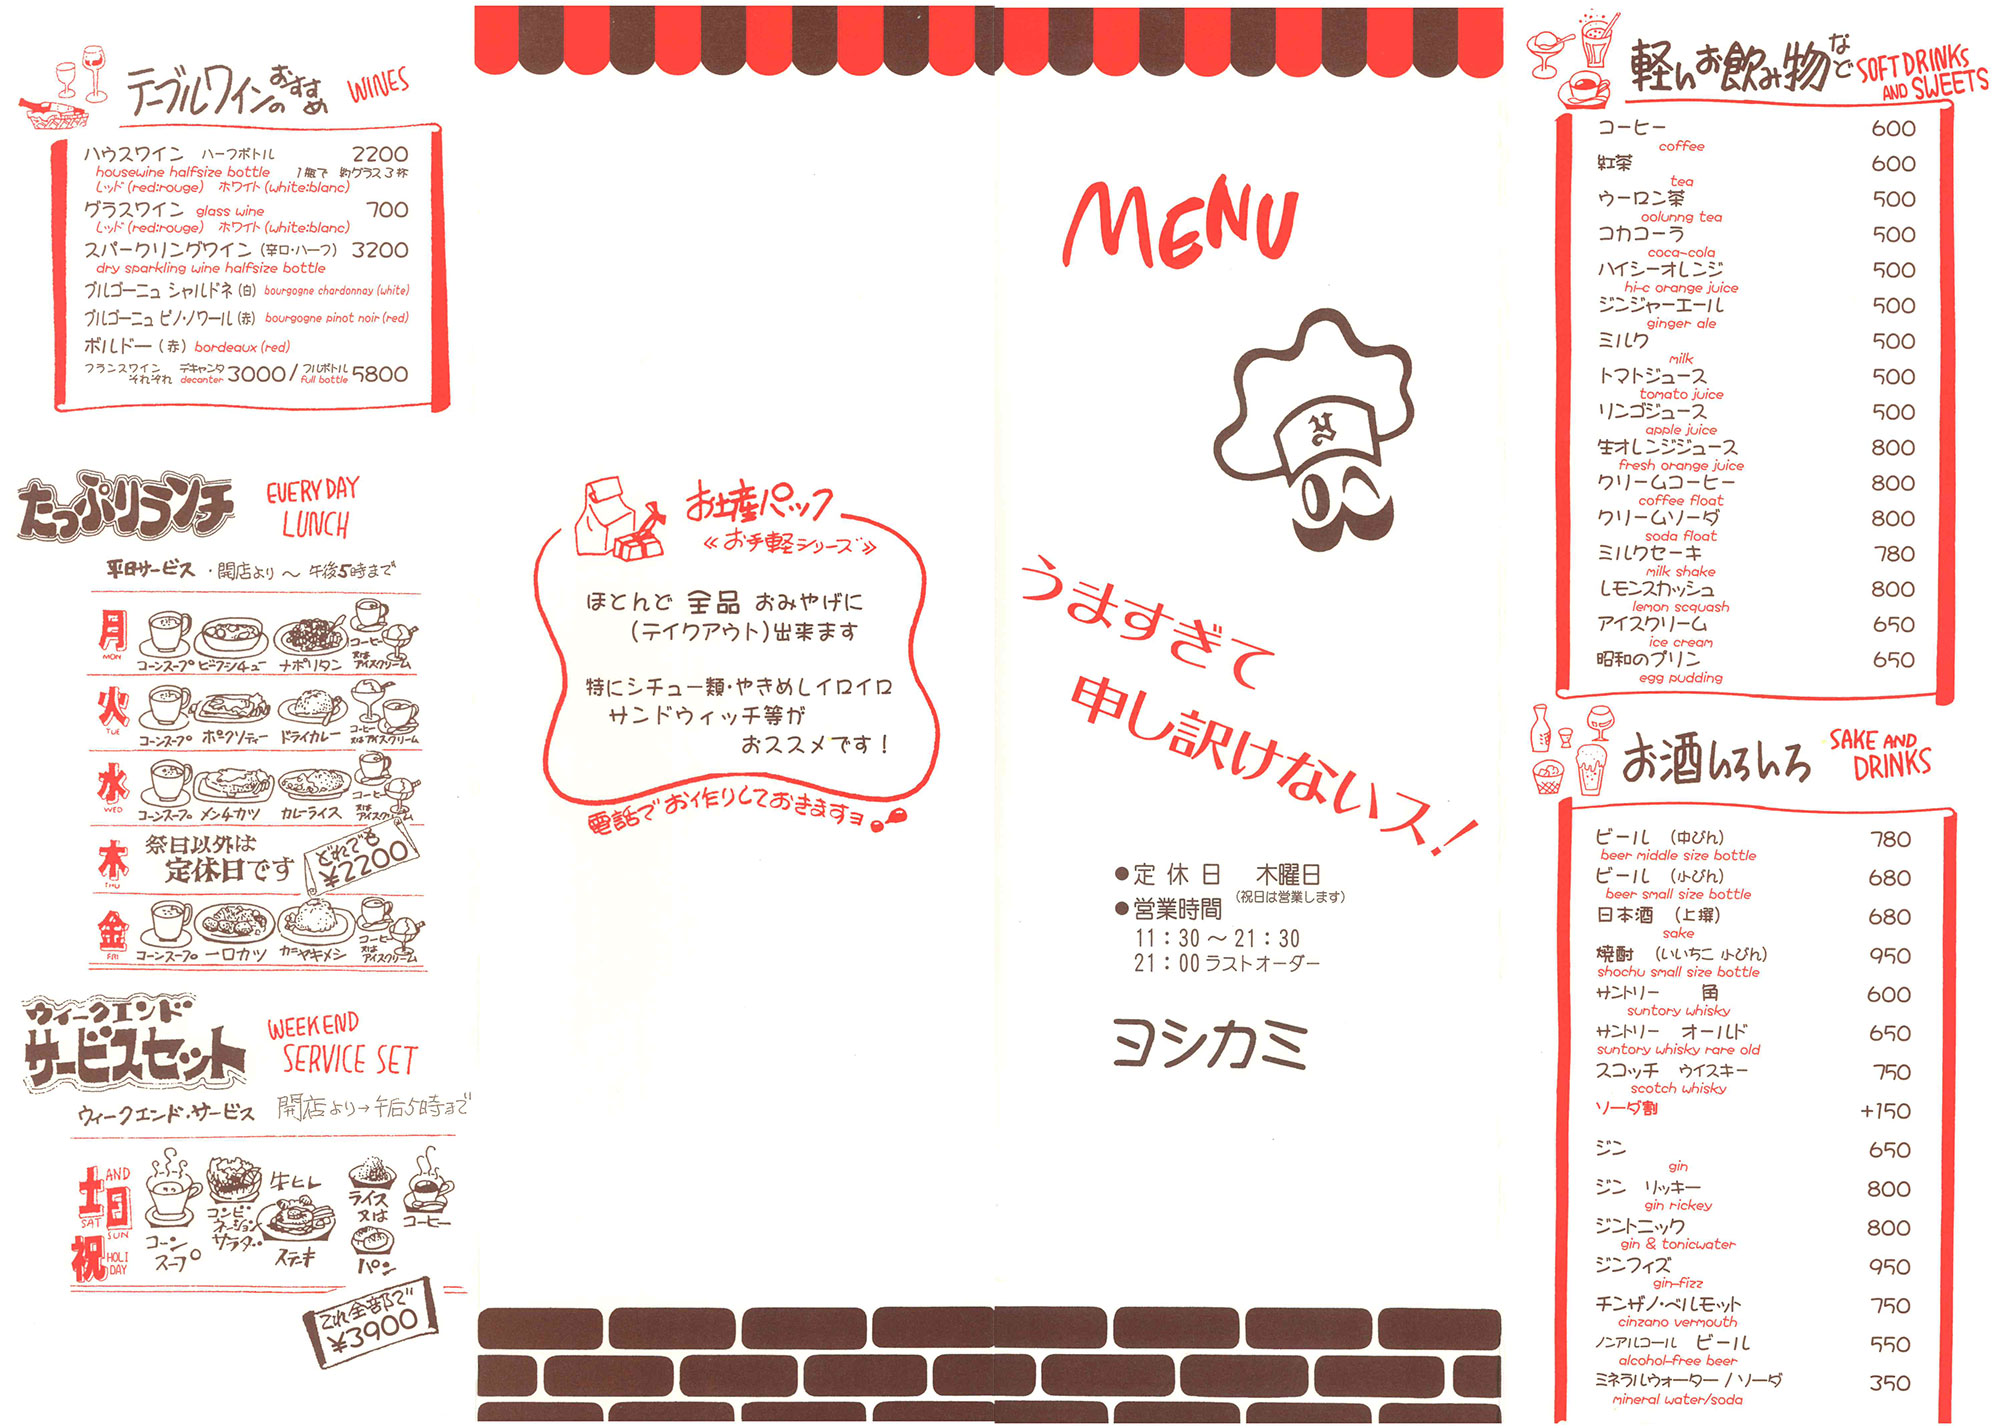 テーブルワインのおすすめ
WINES
ハウスワイン ハーフボトル 2200
housewine halfsize bottle 1瓶で 約グラス3杯
レッド(red:rouge) ホワイト(white:blanc)
グラスワイン glass wine 700
レッド(red:rouge) ホワイト(white:blanc)
スパークリングワイン(辛口・ハーフ) 3200
dry sparkling wine halfsize bottle
ブルゴーニュ シャルドネ(白) bourgogne chardonnay (white)
ブルゴーニュ ピノ・ノワール(赤) bourgogne pinot noir (red)
ボルドー(赤) bordeaux (red)
フランスワイン それぞれ デキャンタ decanter 3000 / フルボトル full bottle 5800
たっぷりランチ
EVERYDAY
LUNCH
平日サービス ・開店より〜午後5時まで
月 MON
コーンスープ ビーフシチュー ナポリタン コーヒー又はアイスクリーム
火 TUE
コーンスープ ポークソティー ドライカレー コーヒー又はアイスクリーム
水 WED
コーンスープ メンチカツ カレーライス コーヒー又はアイスクリーム
木 THU
祭日以外は
定休日です
どれでも
¥2200
金 FRI
コーンスープ 一口カツ カニヤキメシ コーヒー又はアイスクリーム
ウィークエンド
サービスセット
WEEKEND
SERVICE SET
ウィークエンド・サービス 開店より→午后5時まで
土 SAT AND 日 SUN
祝 HOLIDAY
コーンスープ
コンビネーションサラダ
牛ヒレステーキ
ライス又はパン
コーヒー
これ全部で
¥3900
お土産パック
≪お手軽シリーズ≫
ほとんど 全品 おみやげに
(テイクアウト)出来ます
特にシチュー類・やきめしイロイロ
サンドウィッチ等が
おススメです!
電話でお作りしておきますヨ
MENU
うますぎて
申し訳けないス!
●定休日 木曜日
(祝日は営業します)
●営業時間
11:30〜21:30
21:00ラストオーダー
ヨシカミ
軽いお飲み物など
SOFT DRINKS
AND SWEETS
コーヒー 600
coffee
紅茶 600
tea
ウーロン茶 500
oolunng tea
コカコーラ 500
coca-cola
ハイシーオレンジ 500
hi-c orange juice
ジンジャーエール 500
ginger ale
ミルク 500
milk
トマトジュース 500
tomato juice
リンゴジュース 500
apple juice
生オレンジジュース 800
fresh orange juice
クリームコーヒー 800
coffee float
クリームソーダ 800
soda float
ミルクセーキ 780
milk shake
レモンスカッシュ 800
lemon scquash
アイスクリーム 650
ice cream
昭和のプリン 650
egg pudding
お酒いろいろ
SAKE AND
DRINKS
ビール (中びん) 780
beer middle size bottle
ビール (小びん) 680
beer small size bottle
日本酒 (上撰) 680
sake
焼酎 (いいちこ 小びん) 950
shochu small size bottle
サントリー 角 600
suntory whisky
サントリー オールド 650
suntory whisky rare old
スコッチ ウイスキー 750
scotch whisky
ソーダ割 +150
ジン 650
gin
ジン リッキー 800
gin rickey
ジントニック 800
gin & tonicwater
ジンフィズ 950
gin-fizz
チンザノ・ベルモット 750
cinzano vermouth
ノンアルコール ビール 550
alcohol-free beer
ミネラルウォーター / ソーダ 350
mineral water/soda